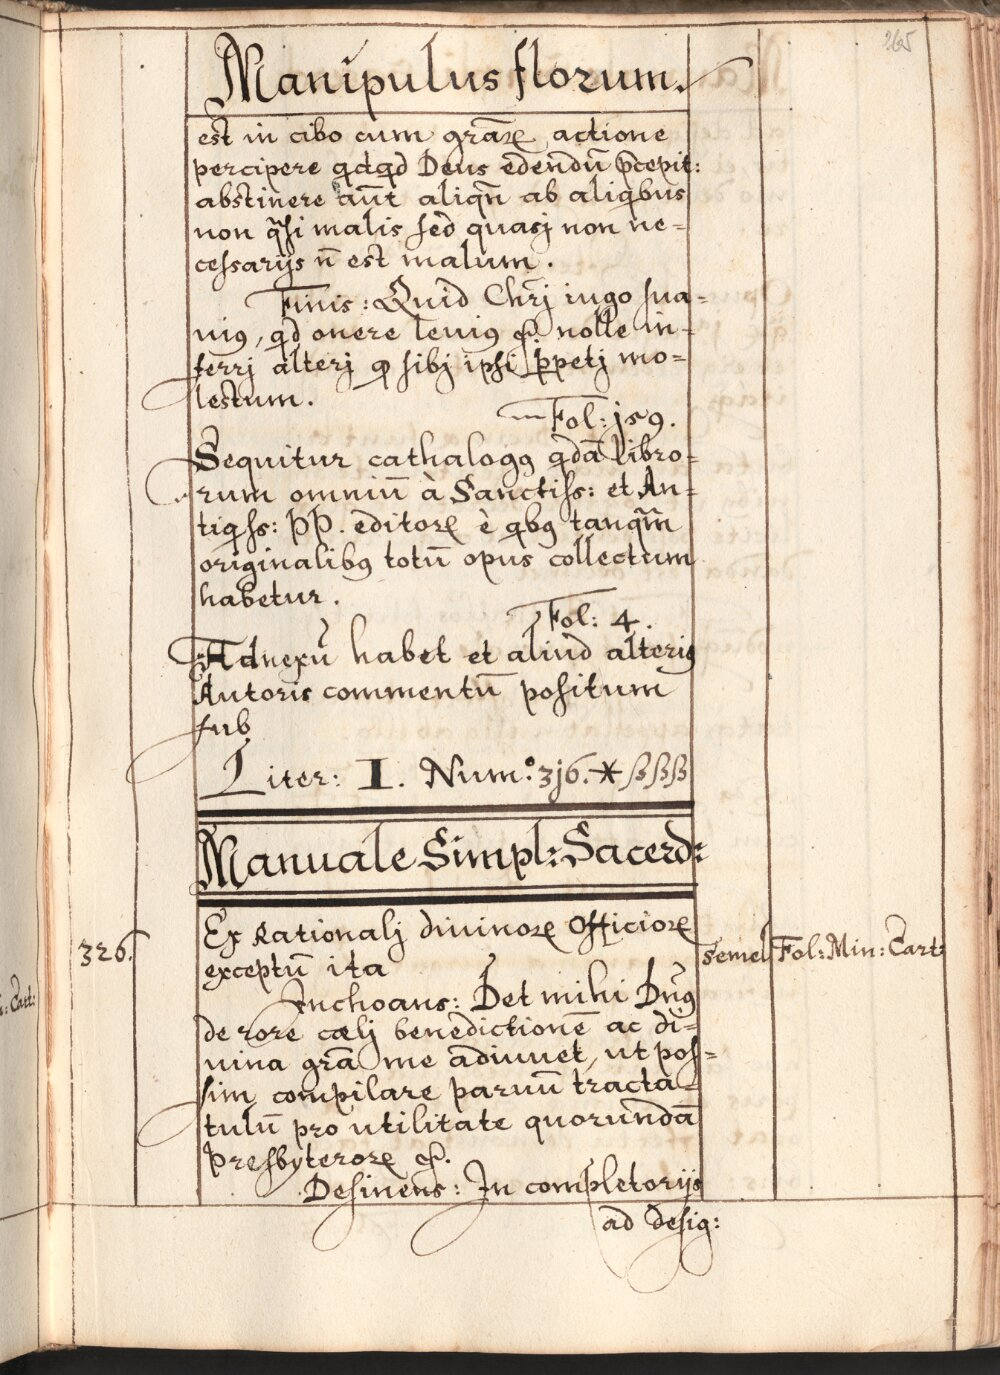 265
Manipulus florum.
est in cibo cum grãrꝝ actione
percipere qdqd Deus edendũ p̃cepit:
abstinere aũt aliqñ ab aliqbus
non q̃si malis sed quasj non ne=
cessarijs ñ est malum.
Finis: Quid Chrj iugo sua=
uiꝯ, qd onere leuiꝯ &. nolle in=
ferrj alterj qꝫ sibj ipsi ꝑpetj mo=
lestum.
Fol: js9.
Sequitur cathalogꝯ qdã libro=
rum omniũ à Sanctiss: et An=
tiqss: PP. editorꝝ è qbꝯ tanq̃m
originalibꝯ totũ opus collectum
habetur.
Fol: 4.
Adnexũ habet et aliud alteriꝯ
Autoris commentũ positum
sub
Liter: I. Num: 3j6. * ßßß
Manuale Simpl: Sacerd:
326.
Ex Rationalj diuinorꝝ Officiorꝝ
semel
Fol: Min: Cart:
exceptũ ita
Inchoans: Det mihi Dñꝯ
de rore cælj benedictionẽ ac di=
uina grã me adiuuet, ut pos=
sim compilare paruũ tracta=
tulũ pro utilitate quorundã
Presbyterorꝝ &.
Desinens: In completorijs
ad desig:
: Cart: